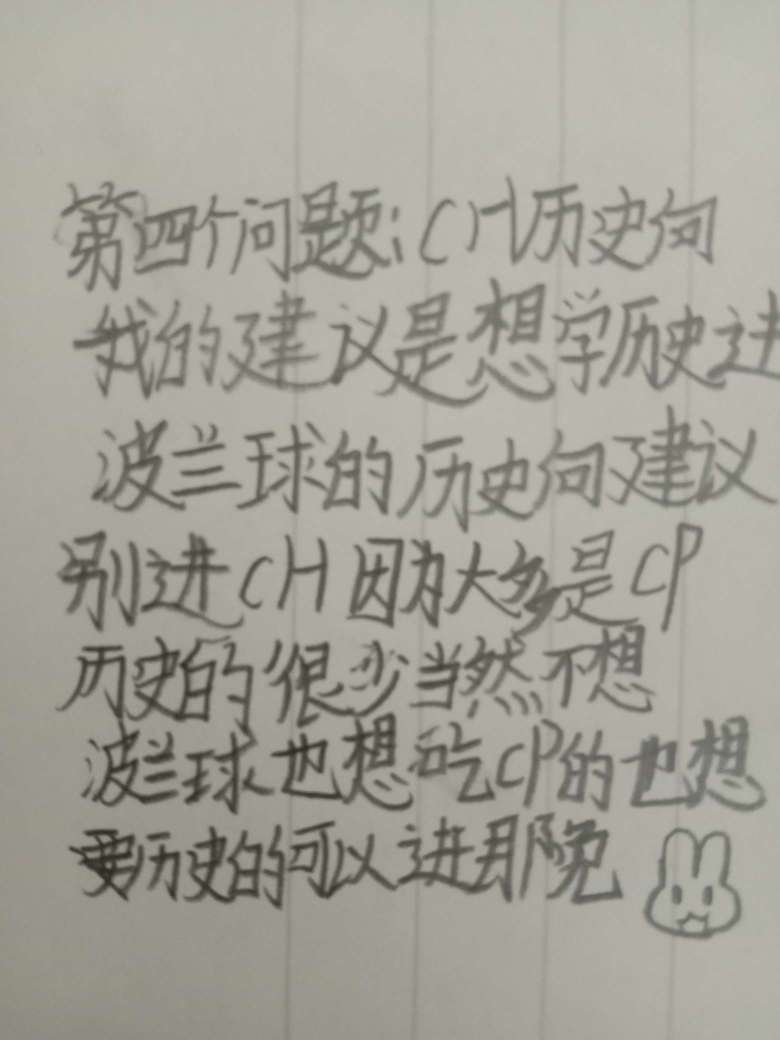 第四个问题：CH历史向
我的建议是想学历史进
波兰球的历史向建议
别进CH因为大多是CP
历史的很少当然不想
波兰球也想吃CP的也想
要历史的可以进那兔